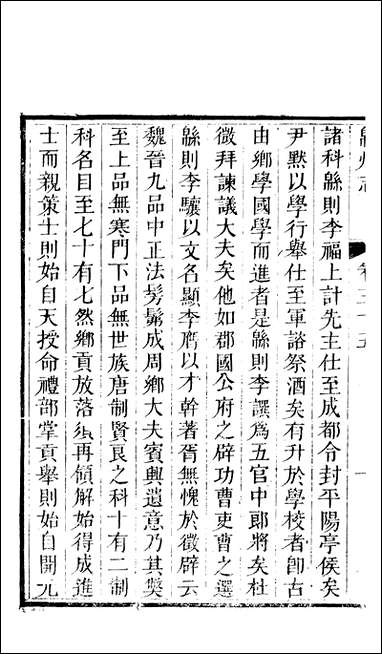 緜州志 卷三十五 一
諸科緜則李福上計先主仕至成都令封平陽亭侯矣
尹默以學行舉仕至軍諮祭酒矣有升於學校者卽古
由鄉學國學而進者是緜則李譔爲五官中郎將矣杜
微拜諫議大夫矣他如郡國公府之辟功曹吏曹之選
緜則李驤以文名顯李膺以才幹著胥無愧於徵辟云
魏晉九品中正法髣髴成周鄉大夫賓興遺意乃其獘
至上品無寒門下品無世族唐制賢良之科十有二制
科名目至七十有七然鄉貢放落須再領解始得成進
士而親策士則始自天授命禮部掌貢舉則始自開元